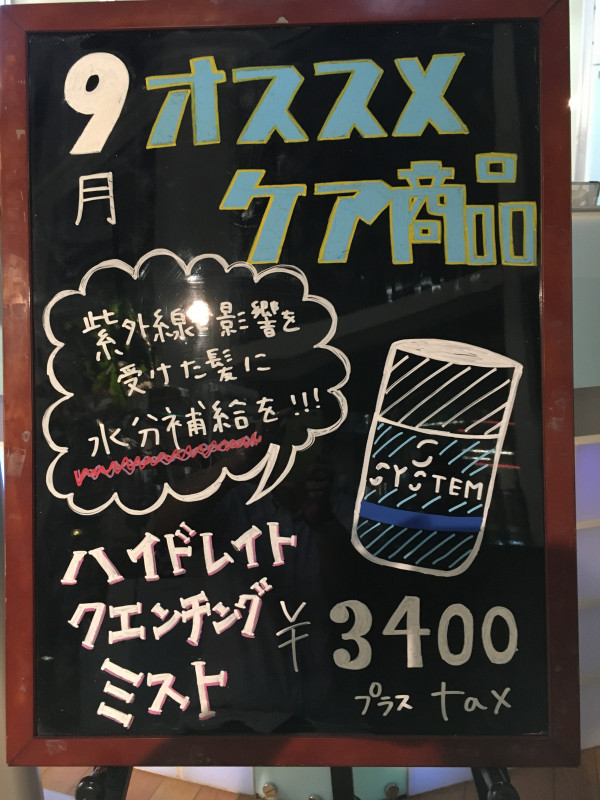 9月
オススメ
ケア商品
紫外線で影響を
受けた髪に
水分補給を!!!
S
SYSTEM
ハイドレイト
クエンチング
ミスト
¥3400
プラス tax